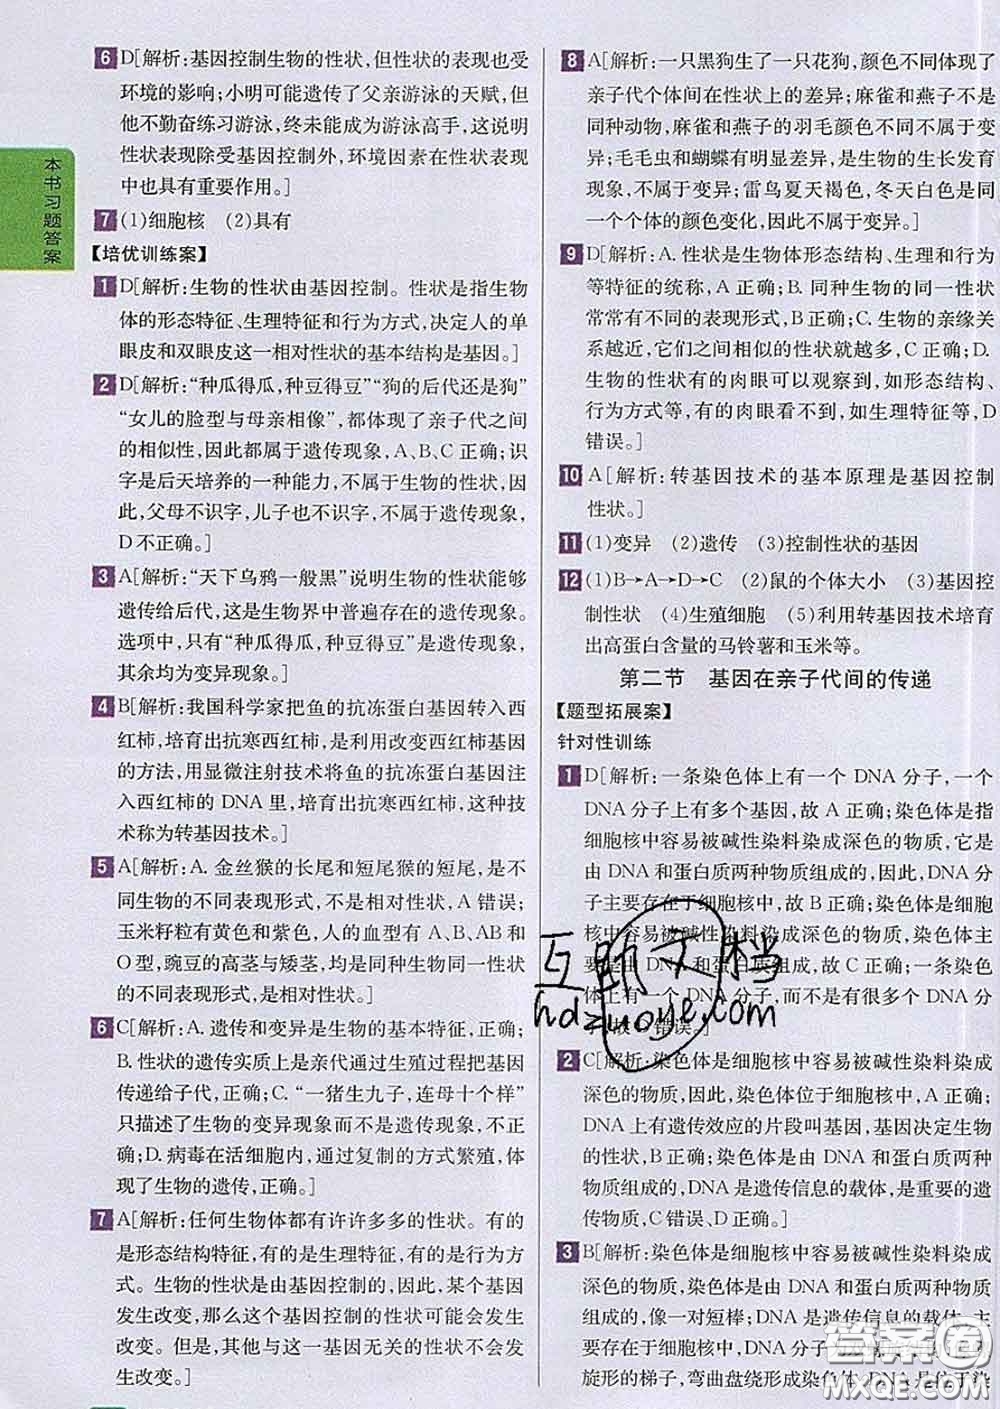 本书习题答案
6 D[解析:基因控制生物的性状,但性状的表现也受
环境的影响;小明可能遗传了父亲游泳的天赋,但
他不勤奋练习游泳,终未能成为游泳高手,这说明
性状表现除受基因控制外,环境因素在性状表现
中也具有重要作用。]
7 (1)细胞核 (2)具有
【培优训练案】
1 D[解析:生物的性状由基因控制。性状是指生物
体的形态特征、生理特征和行为方式,决定人的单
眼皮和双眼皮这一相对性状的基本结构是基因。]
2 D[解析:“种瓜得瓜,种豆得豆”“狗的后代还是狗”
“女儿的脸型与母亲相像”,都体现了亲子代之间
的相似性,因此都属于遗传现象,A、B、C正确;识
字是后天培养的一种能力,不属于生物的性状,因
此,父母不识字,儿子也不识字,不属于遗传现象,
D不正确。]
3 A[解析:“天下乌鸦一般黑”说明生物的性状能够
遗传给后代,这是生物界中普遍存在的遗传现象。
选项中,只有“种瓜得瓜,种豆得豆”是遗传现象,
其余均为变异现象。]
4 B[解析:我国科学家把鱼的抗冻蛋白基因转入西
红柿,培育出抗寒西红柿,是利用改变西红柿基因
的方法,用显微注射技术将鱼的抗冻蛋白基因注
入西红柿的DNA里,培育出抗寒西红柿,这种技
术称为转基因技术。]
5 A[解析:A.金丝猴的长尾和短尾猴的短尾,是不
同生物的不同表现形式,不是相对性状,A错误;
玉米籽粒有黄色和紫色,人的血型有A、B、AB和
O型,豌豆的高茎与矮茎,均是同种生物同一性状
的不同表现形式,是相对性状。]
6 C[解析:A.遗传和变异是生物的基本特征,正确;
B.性状的遗传实质上是亲代通过生殖过程把基因
传递给子代,正确;C.“一猪生九子,连母十个样”
只描述了生物的变异现象而不是遗传现象,不正
确;D.病毒在活细胞内,通过复制的方式繁殖,体
现了生物的遗传,正确。]
7 A[解析:任何生物体都有许许多多的性状。有的
是形态结构特征,有的是生理特征,有的是行为方
式。生物的性状是由基因控制的,因此,某个基因
发生改变,那么这个基因控制的性状可能会发生
改变。但是,其他与这一基因无关的性状不会发
生改变。]
8 A[解析:一只黑狗生了一只花狗,颜色不同体现了
亲子代个体间在性状上的差异;麻雀和燕子不是
同种动物,麻雀和燕子的羽毛颜色不同不属于变
异;毛毛虫和蝴蝶有明显差异,是生物的生长发育
现象,不属于变异;雷鸟夏天褐色,冬天白色是同
一个个体的颜色变化,因此不属于变异。]
9 D[解析:A.性状是生物体形态结构、生理和行为
等特征的统称,A正确;B.同种生物的同一性状
常常有不同的表现形式,B正确;C.生物的亲缘关
系越近,它们之间相似的性状就越多,C正确;D.
生物的性状有的肉眼可以观察到,如形态结构、
行为方式等,有的肉眼看不到,如生理特征等,D
错误。]
10 A[解析:转基因技术的基本原理是基因控制
性状。]
11 (1)变异 (2)遗传 (3)控制性状的基因
12 (1)B→A→D→C (2)鼠的个体大小 (3)基因控
制性状 (4)生殖细胞 (5)利用转基因技术培育
出高蛋白含量的马铃薯和玉米等。
第二节 基因在亲子代间的传递
【题型拓展案】
针对性训练
1 D[解析:一条染色体上有一个DNA分子,一个
DNA分子上有多个基因,故A正确;染色体是指
细胞核中容易被碱性染料染成深色的物质,它是
由DNA和蛋白质两种物质组成的,因此,DNA分
子主要存在于细胞核中,故B正确;染色体是细胞
核中容易被碱性染料染成深色的物质,染色体主
要是由DNA和蛋白质组成,故C正确;一条染色
体上有一个DNA分子,而不是有很多个DNA分
子,故D错误。]
2 C[解析:染色体是细胞核中容易被碱性染料染成
深色的物质,因此,染色体位于细胞核中,A正确;
DNA上有遗传效应的片段叫基因,基因决定生物
的性状,B正确;染色体是由DNA和蛋白质两种物
质组成的,DNA是遗传信息的载体,是重要的遗
传物质,C错误、D正确。]
3 B[解析:染色体是细胞核中容易被碱性染料染成
深色的物质,染色体是由DNA和蛋白质两种物质
组成的,像一对短棒;DNA是遗传信息的载体,主
要存在于细胞核中,DNA分子
旋形的梯子,弯曲盘绕形成染色体,DNA是位于染
互助文档
hdzuoye.com
答案圈
MXQE.COM